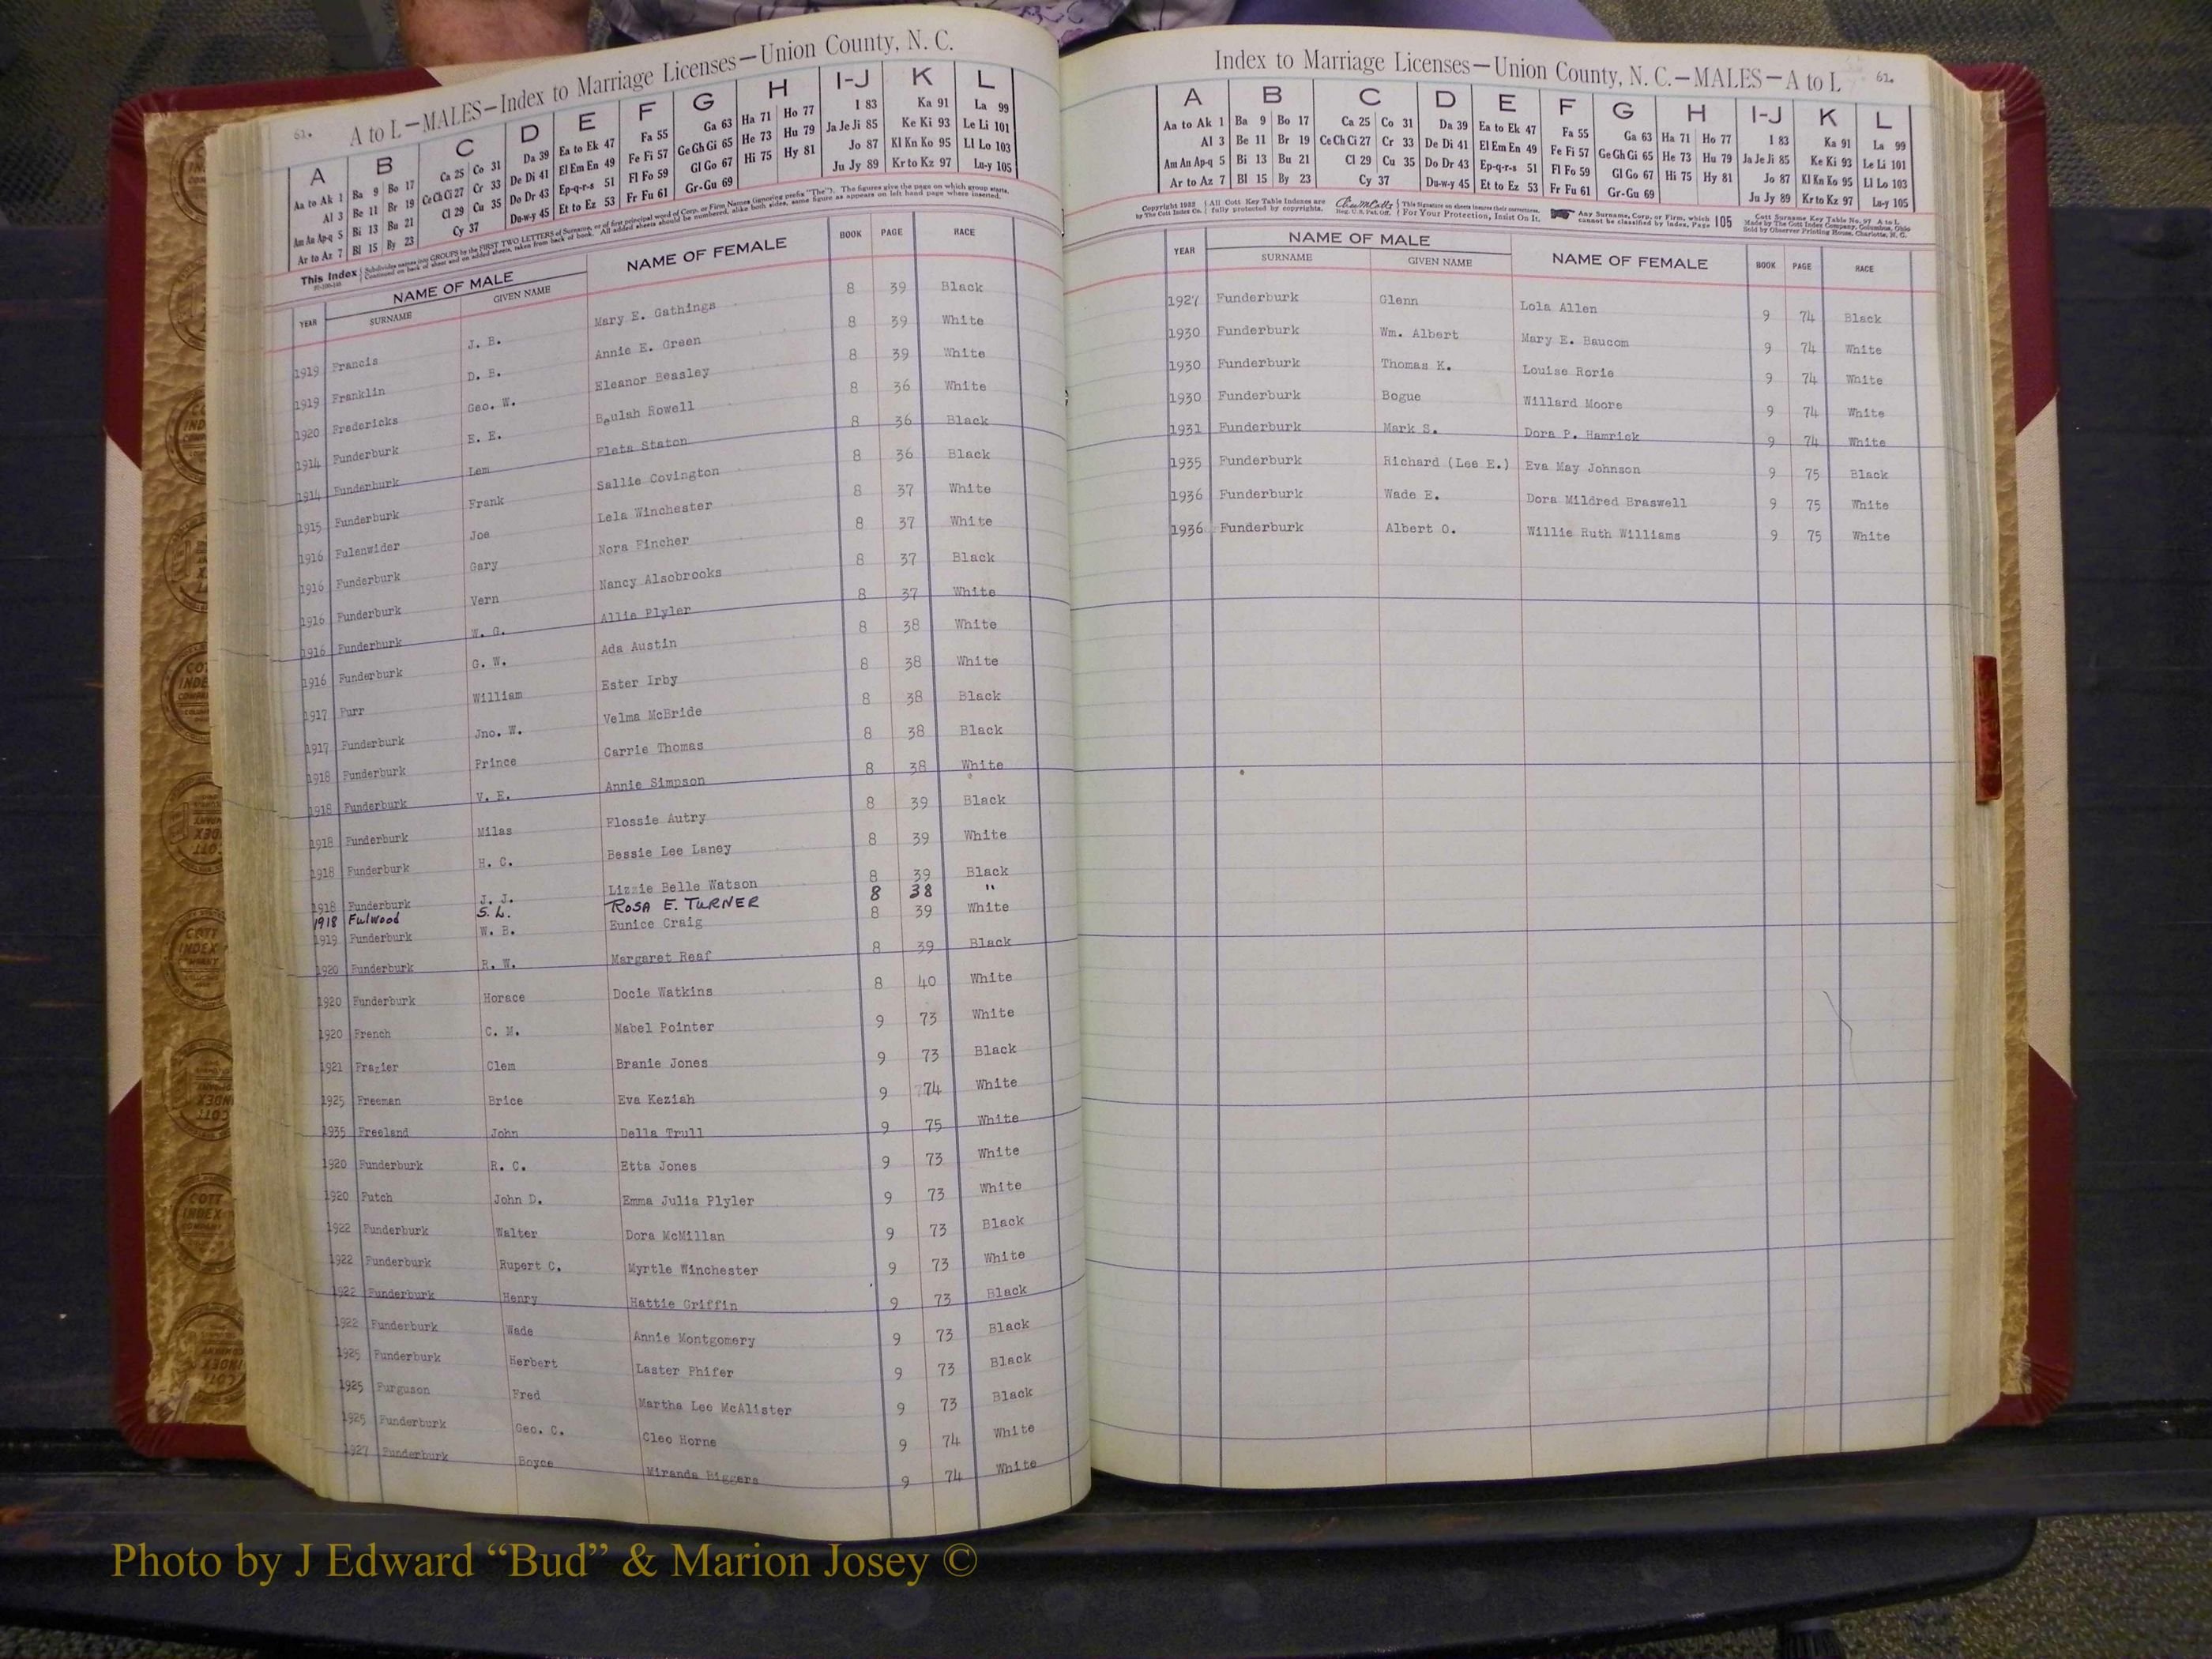 61.
A to L—MALES—Index to Marriage Licenses—Union County, N. C.
A B C D E F G H I-J K L
Aa to Ak 1 Ba 9 Bo 17 Ca 25 Co 31 Da 39 Ea to Ek 47 Fa 55 Ga 63 Ha 71 Ho 77 I 83 Ka 91 La 99
Al 3 Be 11 Br 19 Ce Ch Ci 27 Cr 33 De Di 41 El Em En 49 Fe Fi 57 Ge Gh Gi 65 He 73 Hu 79 Ja Je Ji 85 Ke Ki 93 Le Li 101
Am An Ap-q 5 Bi 13 Bu 21 Cl 29 Cu 35 Do Dr 43 Ep-q-r-s 51 Fl Fo 59 Gl Go 67 Hi 75 Hy 81 Jo 87 Kl Kn Ko 95 Ll Lo 103
Ar to Az 7 Bl 15 By 23 Cy 37 Du-w-y 45 Et to Ez 53 Fr Fu 61 Gr-Gu 69 Ju Jy 89 Kr to Kz 97 Lu-y 105
This Index Subdivides names into GROUPS by the FIRST TWO LETTERS of Surname, or of first principal word of Corp. or Firm Names (ignoring prefix "The"). The figures give the page on which group starts.
Continued on back of sheet and on added sheets, taken from back of book. All added sheets should be numbered, alike both sides, same figure as appears on left hand page where inserted.
YEAR NAME OF MALE NAME OF FEMALE BOOK PAGE RACE
SURNAME GIVEN NAME
1919 Francis J. B. Mary E. Gathings 8 39 Black
1919 Franklin D. B. Annie E. Green 8 39 White
1920 Fredericks Geo. W. Eleanor Beasley 8 39 White
1914 Funderburk E. E. Beulah Rowell 8 36 White
1914 Funderburk Lem Pleta Staton 8 36 Black
1915 Funderburk Frank Sallie Covington 8 36 Black
1916 Fulenwider Joe Lela Winchester 8 37 White
1916 Funderburk Gary Nora Fincher 8 37 White
1916 Funderburk Vern Nancy Alsobrooks 8 37 Black
1916 Funderburk W. G. Allie Plyler 8 37 White
1916 Funderburk G. W. Ada Austin 8 38 White
1917 Furr William Ester Irby 8 38 White
1917 Funderburk Jno. W. Velma McBride 8 38 Black
1918 Funderburk Prince Carrie Thomas 8 38 Black
1918 Funderburk V. E. Annie Simpson 8 38 White
1918 Funderburk Milas Flossie Autry 8 39 Black
1918 Funderburk H. C. Bessie Lee Laney 8 39 White
1918 Funderburk J. J. Lizzie Belle Watson 8 39 Black
1918 Fulwood S. L. ROSA E. TURNER 8 38 "
1919 Funderburk W. B. Eunice Craig 8 39 White
1920 Funderburk R. W. Margaret Reaf 8 39 Black
1920 Funderburk Horace Docie Watkins 8 40 White
1920 French C. M. Mabel Pointer 9 73 White
1921 Frazier Clem Branie Jones 9 73 Black
1925 Freeman Brice Eva Keziah 9 74 White
1935 Freeland John Della Trull 9 75 White
1920 Funderburk R. C. Etta Jones 9 73 White
1920 Futch John D. Emma Julia Plyler 9 73 White
1922 Funderburk Walter Dora McMillan 9 73 Black
1922 Funderburk Rupert C. Myrtle Winchester 9 73 White
1922 Funderburk Henry Hattie Griffin 9 73 Black
1922 Funderburk Wade Annie Montgomery 9 73 Black
1925 Funderburk Herbert Laster Phifer 9 73 Black
1925 Furguson Fred Martha Lee McAlister 9 73 Black
1925 Funderburk Geo. C. Cleo Horne 9 74 White
1927 Funderburk Boyce Miranda Biggers 9 74 White
Index to Marriage Licenses—Union County, N. C.—MALES—A to L 61.
A B C D E F G H I-J K L
Aa to Ak 1 Ba 9 Bo 17 Ca 25 Co 31 Da 39 Ea to Ek 47 Fa 55 Ga 63 Ha 71 Ho 77 I 83 Ka 91 La 99
Al 3 Be 11 Br 19 Ce Ch Ci 27 Cr 33 De Di 41 El Em En 49 Fe Fi 57 Ge Gh Gi 65 He 73 Hu 79 Ja Je Ji 85 Ke Ki 93 Le Li 101
Am An Ap-q 5 Bi 13 Bu 21 Cl 29 Cu 35 Do Dr 43 Ep-q-r-s 51 Fl Fo 59 Gl Go 67 Hi 75 Hy 81 Jo 87 Kl Kn Ko 95 Ll Lo 103
Ar to Az 7 Bl 15 By 23 Cy 37 Du-w-y 45 Et to Ez 53 Fr Fu 61 Gr-Gu 69 Ju Jy 89 Kr to Kz 97 Lu-y 105
Copyright 1932 All Cott Key Table Indexes are This Signature on sheets insures their correctness. Any Surname, Corp. or Firm, which 105 Cott Surname Key Table No. 97 A to L
by The Cott Index Co. fully protected by copyrights. Reg. U.S. Pat. Off. For Your Protection, Insist On It. cannot be classified by Index, Page Made by The Cott Index Company, Columbus, Ohio
Sold by Observer Printing House, Charlotte, N. C.
YEAR NAME OF MALE NAME OF FEMALE BOOK PAGE RACE
SURNAME GIVEN NAME
1927 Funderburk Glenn Lola Allen 9 74 Black
1930 Funderburk Wm. Albert Mary E. Baucom 9 74 White
1930 Funderburk Thomas K. Louise Rorie 9 74 White
1930 Funderburk Bogue Willard Moore 9 74 White
1931 Funderburk Mark S. Dora P. Hamrick 9 74 White
1935 Funderburk Richard (Lee E.) Eva May Johnson 9 75 Black
1936 Funderburk Wade E. Dora Mildred Braswell 9 75 White
1936 Funderburk Albert O. Willie Ruth Williams 9 75 White
Photo by J Edward “Bud” & Marion Josey ©